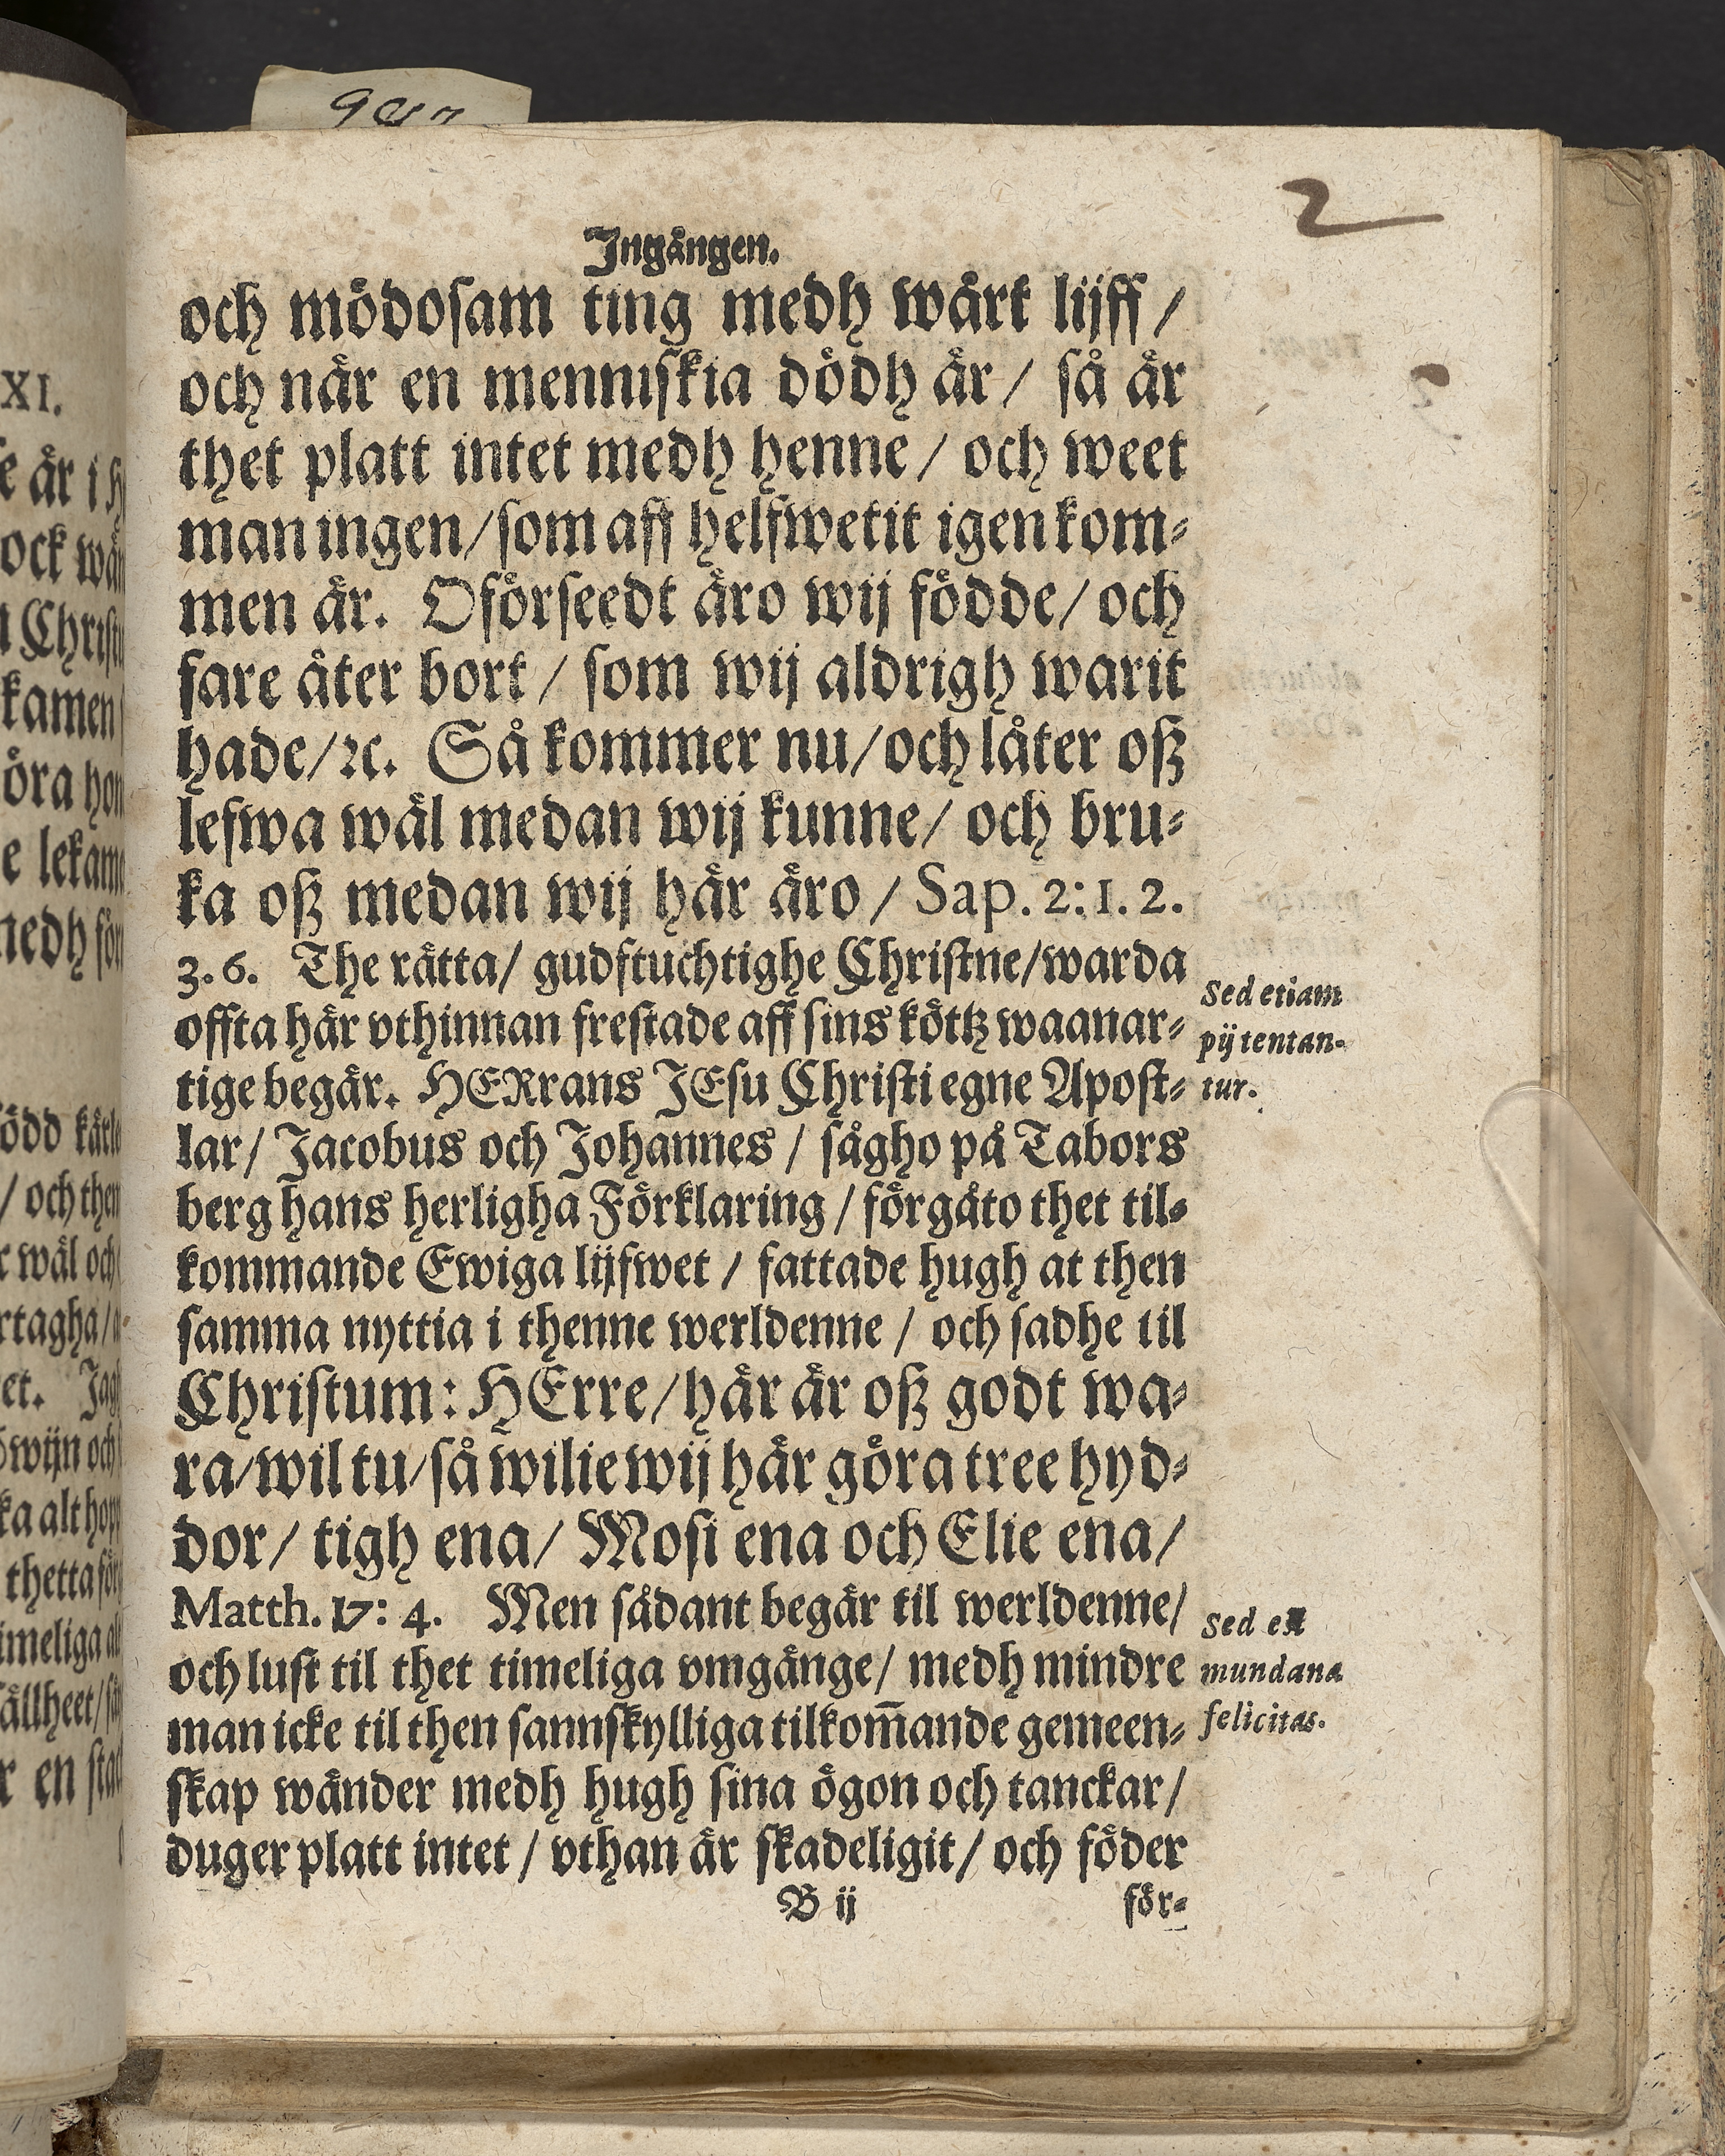 2
Ingången.
och mödosam ting medh wårt lijff /
och når en menniskia dödh år / så år
thet platt intet medh henne / och weet
man ingen / som aff helfwetit igen kom-
men år. Oförseedt åro wij födde / och
fare åter bort / som wij aldrigh warit
hade / ꝛc. Så kommer nu / och låter oß
lefwa wål medan wij kunne / och bru-
ka oß medan wij hår åro / Sap. 2: 1. 2.
3. 6. The råtta / gudfruchtighe Christne / warda
offta hår vthinnan frestade aff sins köttz waanar-
tige begår. HERrans JEsu Christi egne Apost-
lar / Jacobus och Johannes / sågho på Tabors
berg hans herligha Förklaring / förgåto thet til-
kommande Ewiga lijfwet / fattade hugh at then
samma nyttia i thenne werldenne / och sadhe til
Christum: HErre / hår år oß godt wa-
ra / wil tu / så wilie wij hår göra tree hyd-
dor / tigh ena / Mosi ena och Elie ena /
Matth. 17: 4. Men sådant begår til werldenne /
och lust til thet timeliga vmgånge / medh mindre
man icke til then sannskylliga tilkom̅ande gemeen-
skap wånder medh hugh sina ögon och tanckar /
duger platt intet / vthan år skadeligit / och föder
B ij
för-
Sed etiam
pij tentan-
tur.
Sed et
mundana
felicitas.